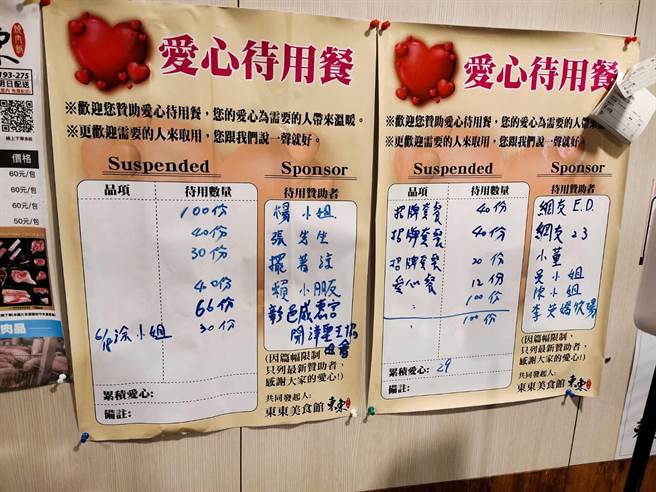 燒肉飯
193-275
明日配送
線上下單系統
價格
60元/包
60元/包
60元/包
50元/包
肉品
愛心待用餐
※歡迎您贊助愛心待用餐,您的愛心為需要的人帶來溫暖。
※更歡迎需要的人來取用,您跟我們說一聲就好。
Suspended Sponsor
品項 待用數量 待用贊助者
100份 楊小姐
40份 張先生
30份
40份 賴小朋友
66份 彰邑威惠宮
6/8 涂小姐 30份 開漳聖王協
進會
(因篇幅限制,
只列最新贊助者,
感謝大家的愛心!)
累積愛心:
備註:
共同發起人:
東東美食館 東東
愛心待用餐
※歡迎您贊助愛心待用餐,您的愛心為需要的人帶來溫
※更歡迎需要的人來取用,您跟我們說一聲就好。
Suspended Sponsor
品項 待用數量 待用贊助者
招牌套餐 40份 網友E.D.
招牌套餐 40份 網友23
招牌套餐 20份 小董
愛心餐 12份 吳小姐
100份 陳小姐
100份
(因篇幅限制,
只列最新贊助者,
感謝大家的愛心!)
累積愛心: 29
備註:
共同發起人:
東東美食館 東東